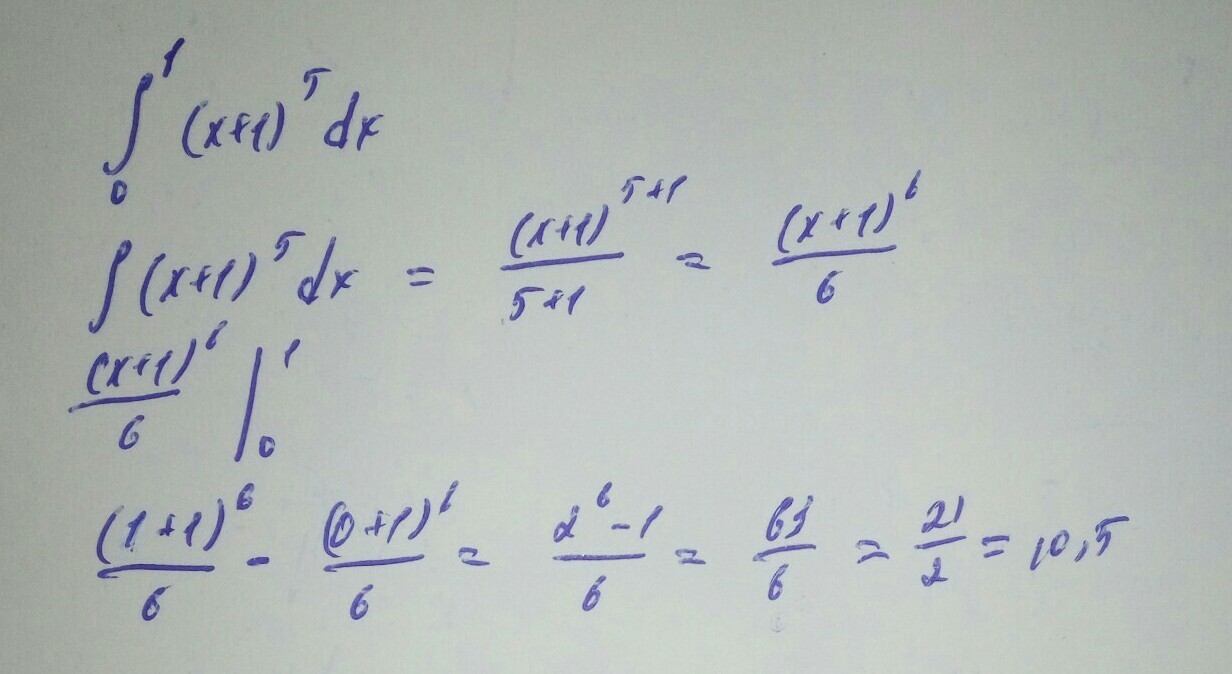 ∫₀¹ (x+1)⁵ dx
∫ (x+1)⁵ dx = (x+1)⁵⁺¹/(5+1) = (x+1)⁶/6
(x+1)⁶/6 |₀¹
(1+1)⁶/6 - (0+1)⁶/6 = (2⁶-1)/6 = 63/6 = 21/2 = 10,5